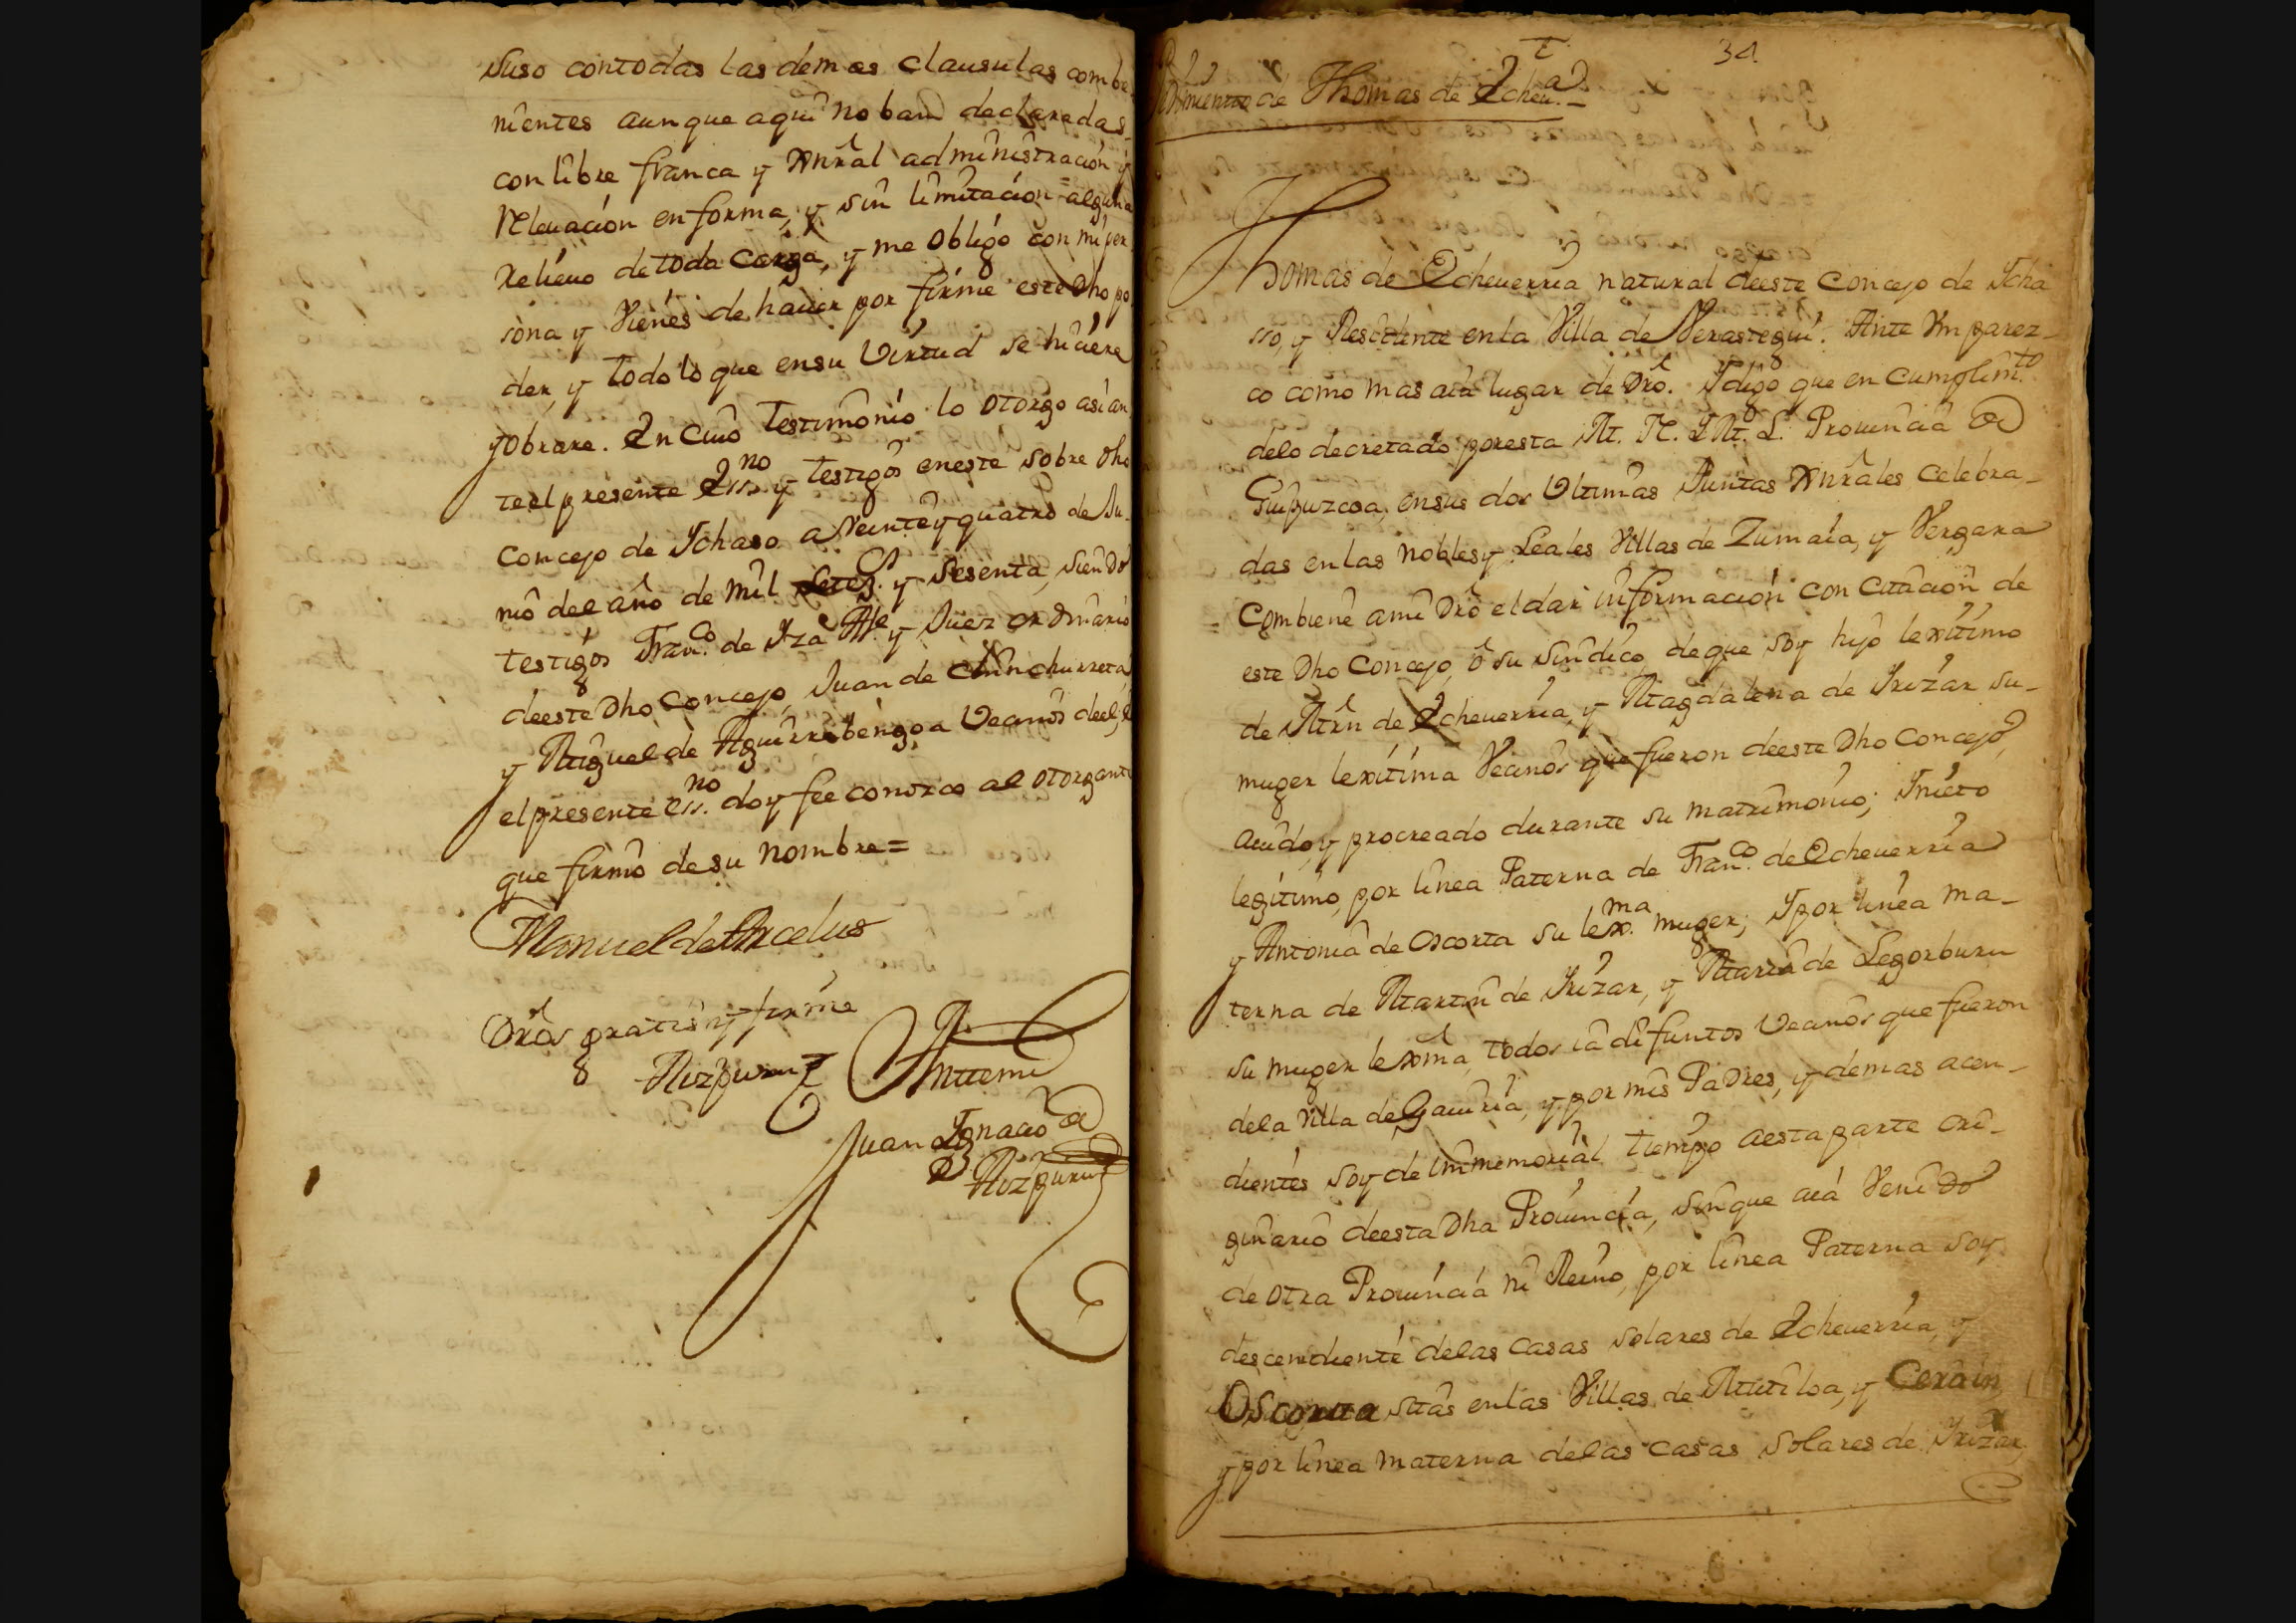 suso contodas las demas clausulas combe
nientes aunque aqui no ban declaradas
con libre franca y Xnral administración y
Relevación en forma, y sin limitación alguna
Relievo de toda carga, y me obligo con mi per
sona y Vienes de haver por firme este Dho po
der, y todo lo que en su Virtud se hiciere
y obrare. En cuio Testimonio lo otorgo asi an
te el presente Essno y testigos en este sobre dho
Concejo de Ichaso a Veinte y quatro de Ju-
nio del año de mil setecs. y sesenta, siendo
testigos Franco. de Iza Alle. y Juez ordinario
de este Dho Concejo, Juan de Chinchurreta
y Miguel de Aguirrebengoa Vecinos de el, e
el presente essno. doy fee conozco al otorgante
que firmó de su nombre=
Manuel de Arcelus
Dros gratis y firme
Aizpuru
Antemi
Juan Ignacio de
Aizpuru
34
Pedimiento de Thomas de Echeva.
Thomas de Echeverria natural de este Concejo de Icha
sso, y Residente en la Villa de Verastegui. Ante Vm parez-
co como mas aia lugar de Dro. I digo que en cumplimto.
de lo decretado por esta M. N. I M. L. Provincia de
Guipuzcoa, en sus dos Ultimas Juntas Xnrales celebra-
das en las nobles y Leales Villas de Zumaia, y Vergara
Combiene ami Dro el dar informacion con citacion de
este Dho Concejo, ô su sindico, de que soy hijo lexitimo
de Mrn de Echeverria, y Magdalena de Irizar su-
muger lexitima Vecinos que fueron de este Dho Concejo,
avido, y procreado durante su matrimonio; I nieto
legitimo, por linea Paterna de Franco. de Echeverria
y Antonia de Oscorta su lexma. muger; I por linea ma-
terna de Martin de Irizar, y Maria de Legorburu
su muger lexma, todos ia difuntos Vecinos que fueron
de la Villa de Gaviria, y por mis Padres, y demas acen-
dientes soy de immemorial tiempo a esta parte ori-
ginario de esta Dha Provincia, sin que aia Venido
de otra Provincia ni Reino, por linea Paterna soy
descendiente de las casas solares de Echeverria, y
Oscorta sitas en las Villas de Mutiloa, y Cerain,
y por linea materna de las casas solares de Irizar,